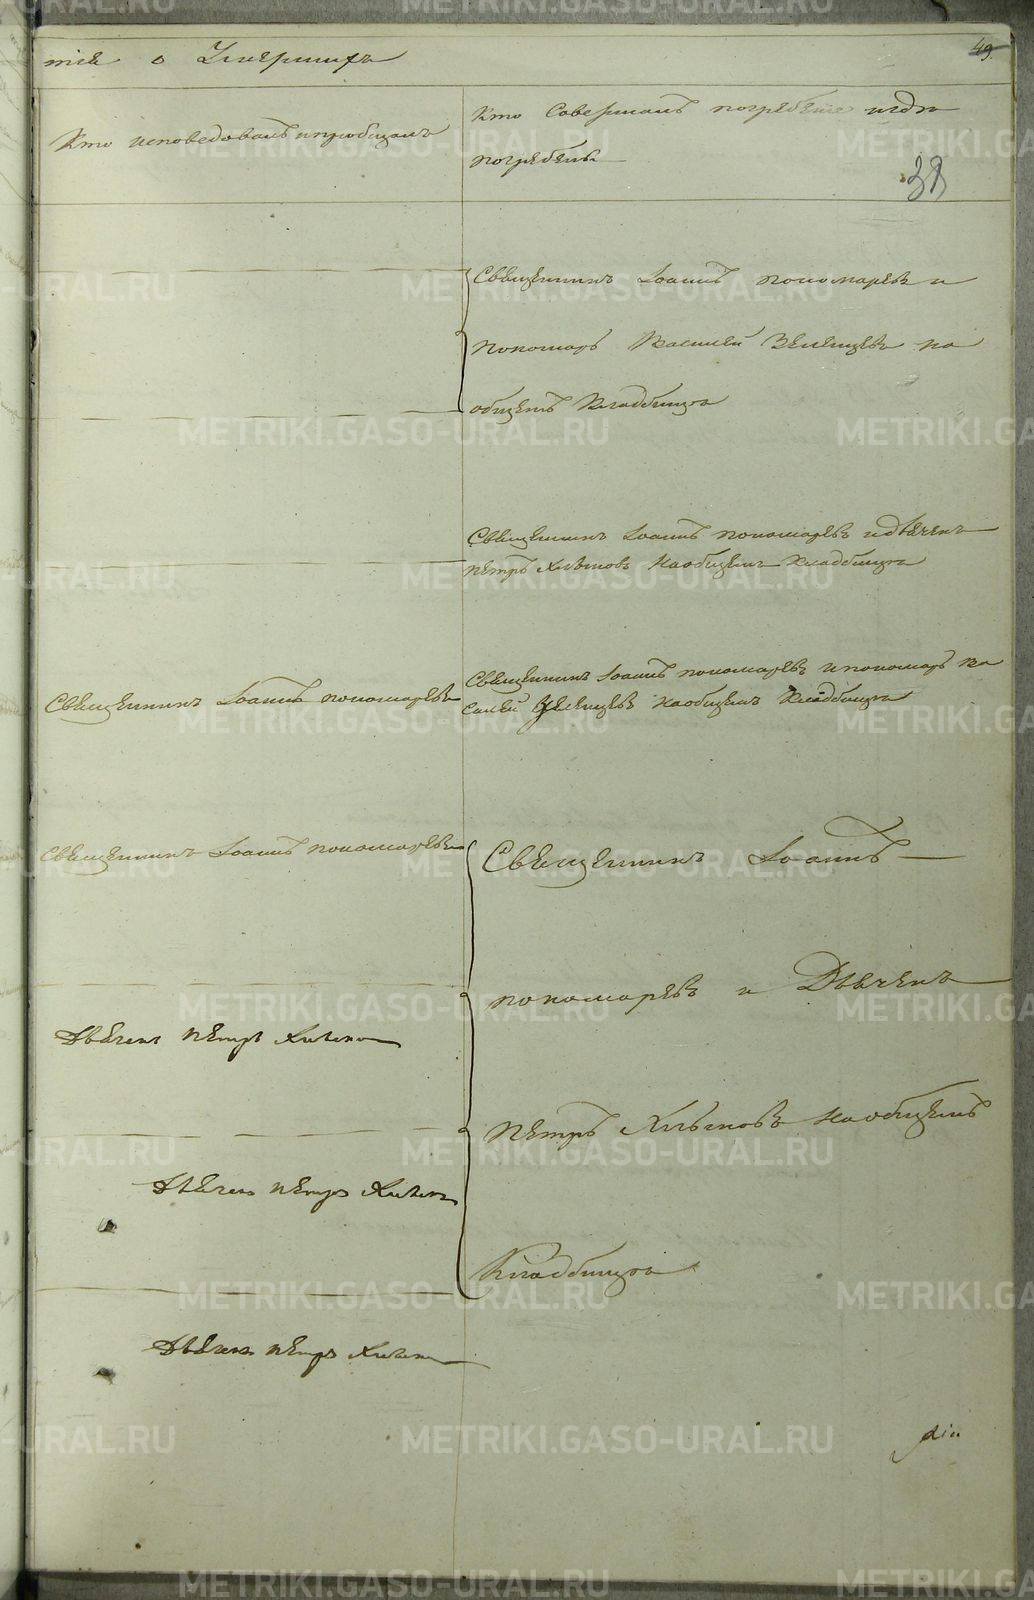 тiя о Умершихъ
49.
Кто исповедовалъ и приобщалъ
Кто Совершалъ погребенiе и где
погребены
38
Священникъ Iоаннъ пономаревъ и
пономарь Василей Зеленцевъ на
общемъ Кладбище
Священникъ Iоаннъ пономаревъ и дьячекъ
петръ Хлыновъ на общемъ Кладбище
Священникъ Iоаннъ пономаревъ
Священникъ Iоаннъ пономаревъ и пономарь ва
силей Зеленцевъ на общемъ Кладбище
Священникъ Iоаннъ пономаревъ
Священникъ Iоаннъ
пономаревъ и Дьячекъ
Дьячекъ петръ
петръ Хлыновъ на общемъ
Дьячекъ петръ
Кладбище
Дьячекъ петръ
METRIKI.GASO-URAL.RU